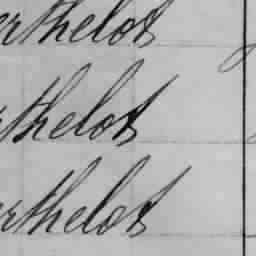 erthelot
rthelot
erthelot